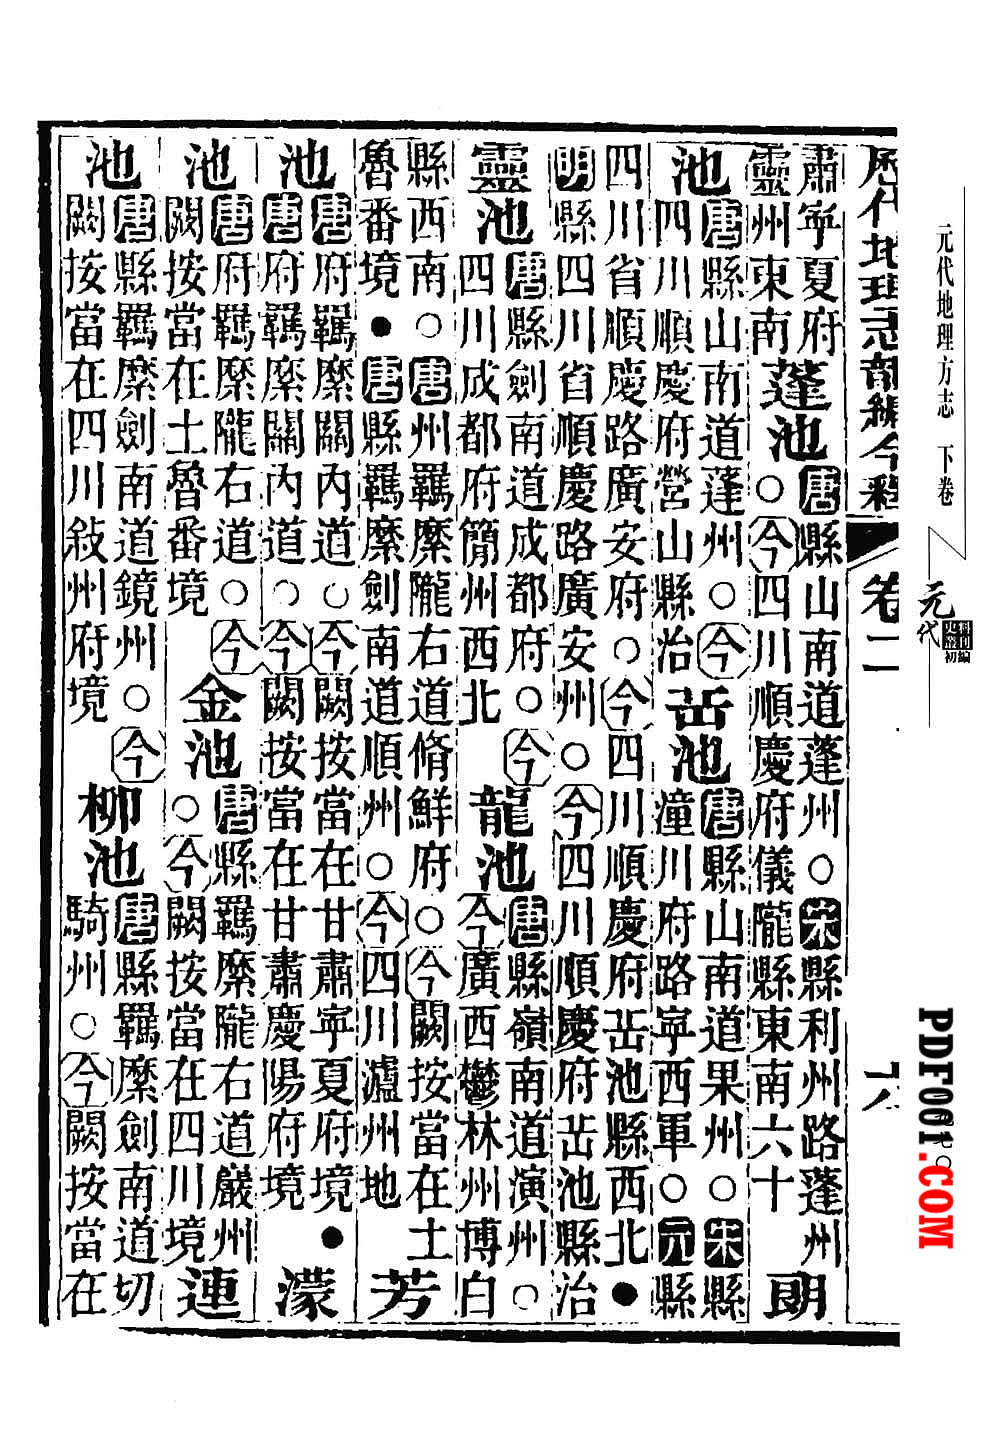 元代地理方志 下卷
元代
初編
歷代地理志韻編今釋 卷二 六
肅寧夏府
靈州東南
蓬池
唐縣山南道蓬州○宋縣利州路蓬州
○今四川順慶府儀隴縣東南六十
朗
池
唐縣山南道蓬州○今
四川順慶府營山縣治
岳池
唐縣山南道果州○宋縣
潼川府路寧西軍○元縣
四川省順慶路廣安府○今四川順慶府岳池縣西北●
明縣四川省順慶路廣安州○今四川順慶府岳池縣治
靈池
唐縣劍南道成都府○今
四川成都府簡州西北
龍池
唐縣嶺南道演州○
今廣西鬱林州博白
縣西南○唐州羈縻隴右道脩鮮府○今闕按當在土
魯番境●唐縣羈縻劍南道順州○今四川瀘州地
芳
池
唐府羈縻關內道○今闕按當在甘肅寧夏府境●
唐府羈縻關內道○今闕按當在甘肅慶陽府境
濛
池
唐府羈縻隴右道○今
闕按當在土魯番境
金池
唐縣羈縻隴右道巖州
○今闕按當在四川境
連
池
唐縣羈縻劍南道鏡州○今
闕按當在四川敍州府境
柳池
唐縣羈縻劍南道切
騎州○今闕按當在
PDF001.COM